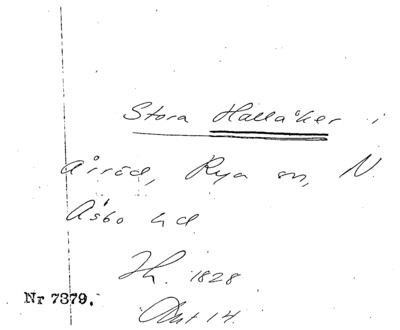 Stora Hallåker i
Årröd, Rya sn, N.
Åsbo hd
Jh. 1828
Nr 7379.
Akt 14.